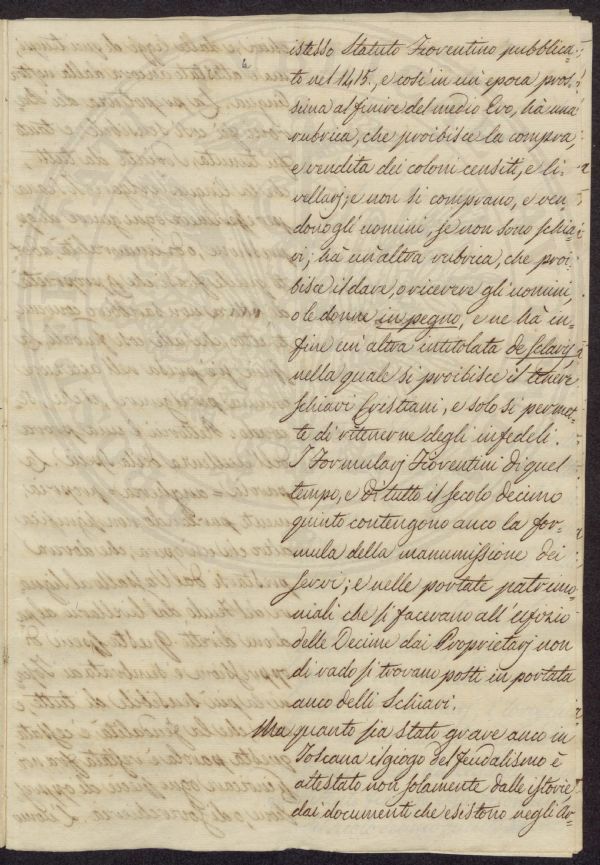 istesso Statuto Fiorentino pubblica-
to nel 1415., e così in un'epoca pros-
sima al finire del medio Evo, hà una
rubrica, che proibisce la compra,
e vendita dei coloni censiti, e li-
vellarj; e non si comprano, e ven-
dono gli uomini, se non sono schia-
vi; hà un'altra rubrica, che proi-
bisce il dare, o ricevere gli uomini,
o le donne in pegno, e ne hà in-
fine un'altra intitolata de Sclavis,
nella quale si proibisce il tenere
Schiavi Cristiani, e solo si permet-
te di ritenerne degli infedeli.
I Formularj Fiorentini di quel
tempo, e di tutto il Secolo decimo
quinto contengono anco la for-
mula della manumissione dei
servi; e nelle portate patrimo-
niali che si facevano all'Ufizio
delle Decime dai Proprietarj non
di rado si trovano posti in portata
anco delli Schiavi.
Ma quanto sia stato grave anco in
Toscana il giogo del feudalismo è
attestato non solamente dalle istorie
dai documenti che esistono negli Ar-